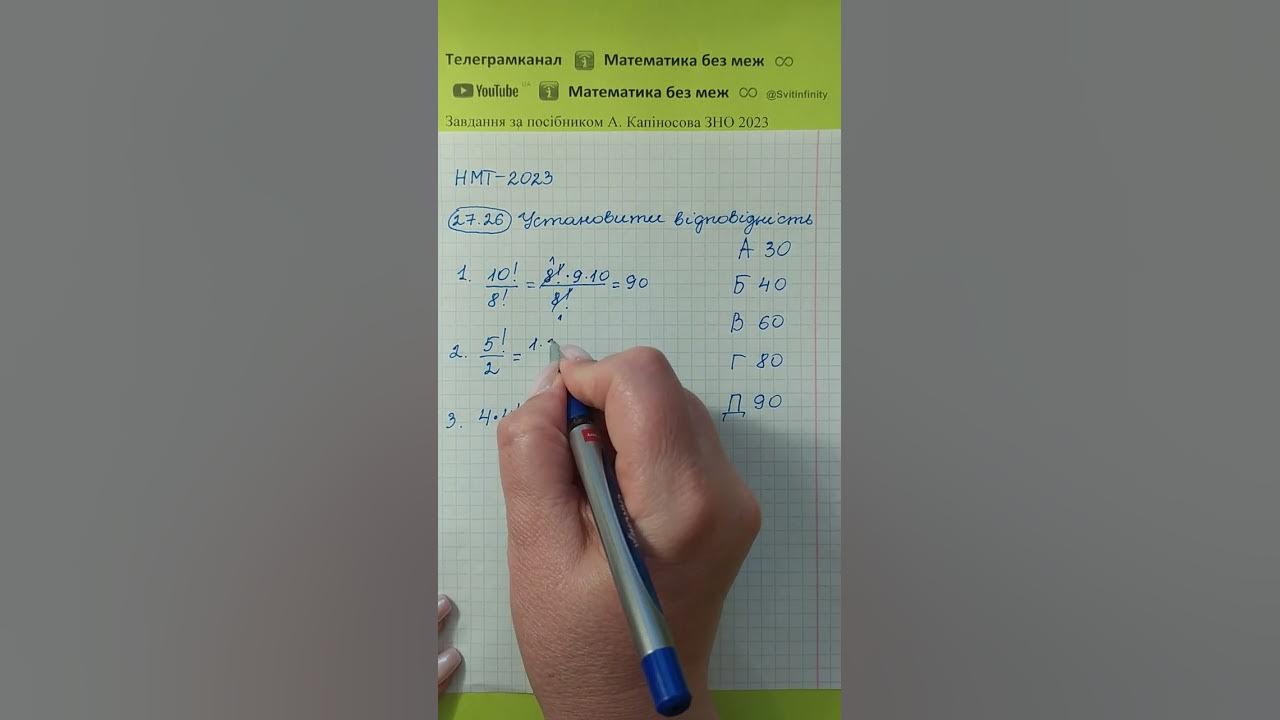 Телеграмканал Математика без меж ∞
YouTube UA Математика без меж ∞ @Svitinfinity
Завдання за посібником А. Капіносова ЗНО 2023
НМТ-2023
27.26 Установити відповідність
1. 10!/8! = 8!·9·10/8! = 90
2. 5!/2 = 1·
3. 4·
А 30
Б 40
В 60
Г 80
Д 90